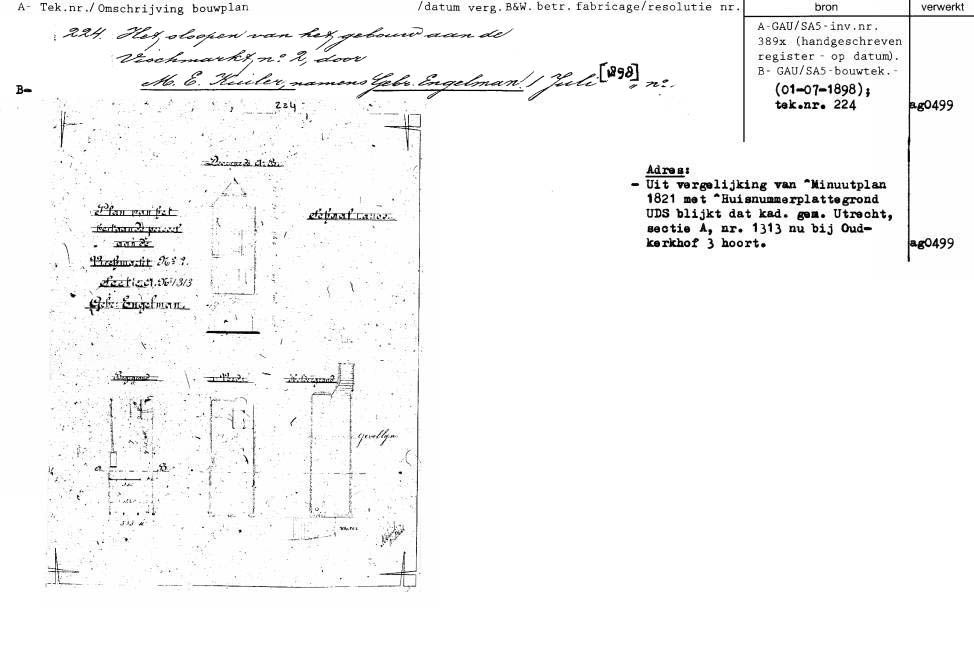 A- Tek.nr./ Omschrijving bouwplan /datum verg. B&W. betr. fabricage/resolutie nr.
bron
verwerkt
224. Het sloopen van het gebouw aan de
Vischmarkt, no. 2, door
B- M. E. Kuiler, namens Gebr. Engelman / Juli [1898] „ no.
A-GAU/SA5-inv.nr.
389x (handgeschreven
register - op datum).
B- GAU/SA5-bouwtek.-
(01-07-1898);
tek.nr. 224
ag0499
Adres:
- Uit vergelijking van ^Minuutplan
1821 met ^Huisnummerplattegrond
UDS blijkt dat kad. gem. Utrecht,
sectie A, nr. 1313 nu bij Oud-
kerkhof 3 hoort.
ag0499
224
Doorsnede A.B.
Plan van het
bestaande perceel
aan de
Vischmarkt No. 2.
Sectie A. No. 1313
Gebr: Engelman.
Schaal
Begrond
A B
gevellijn